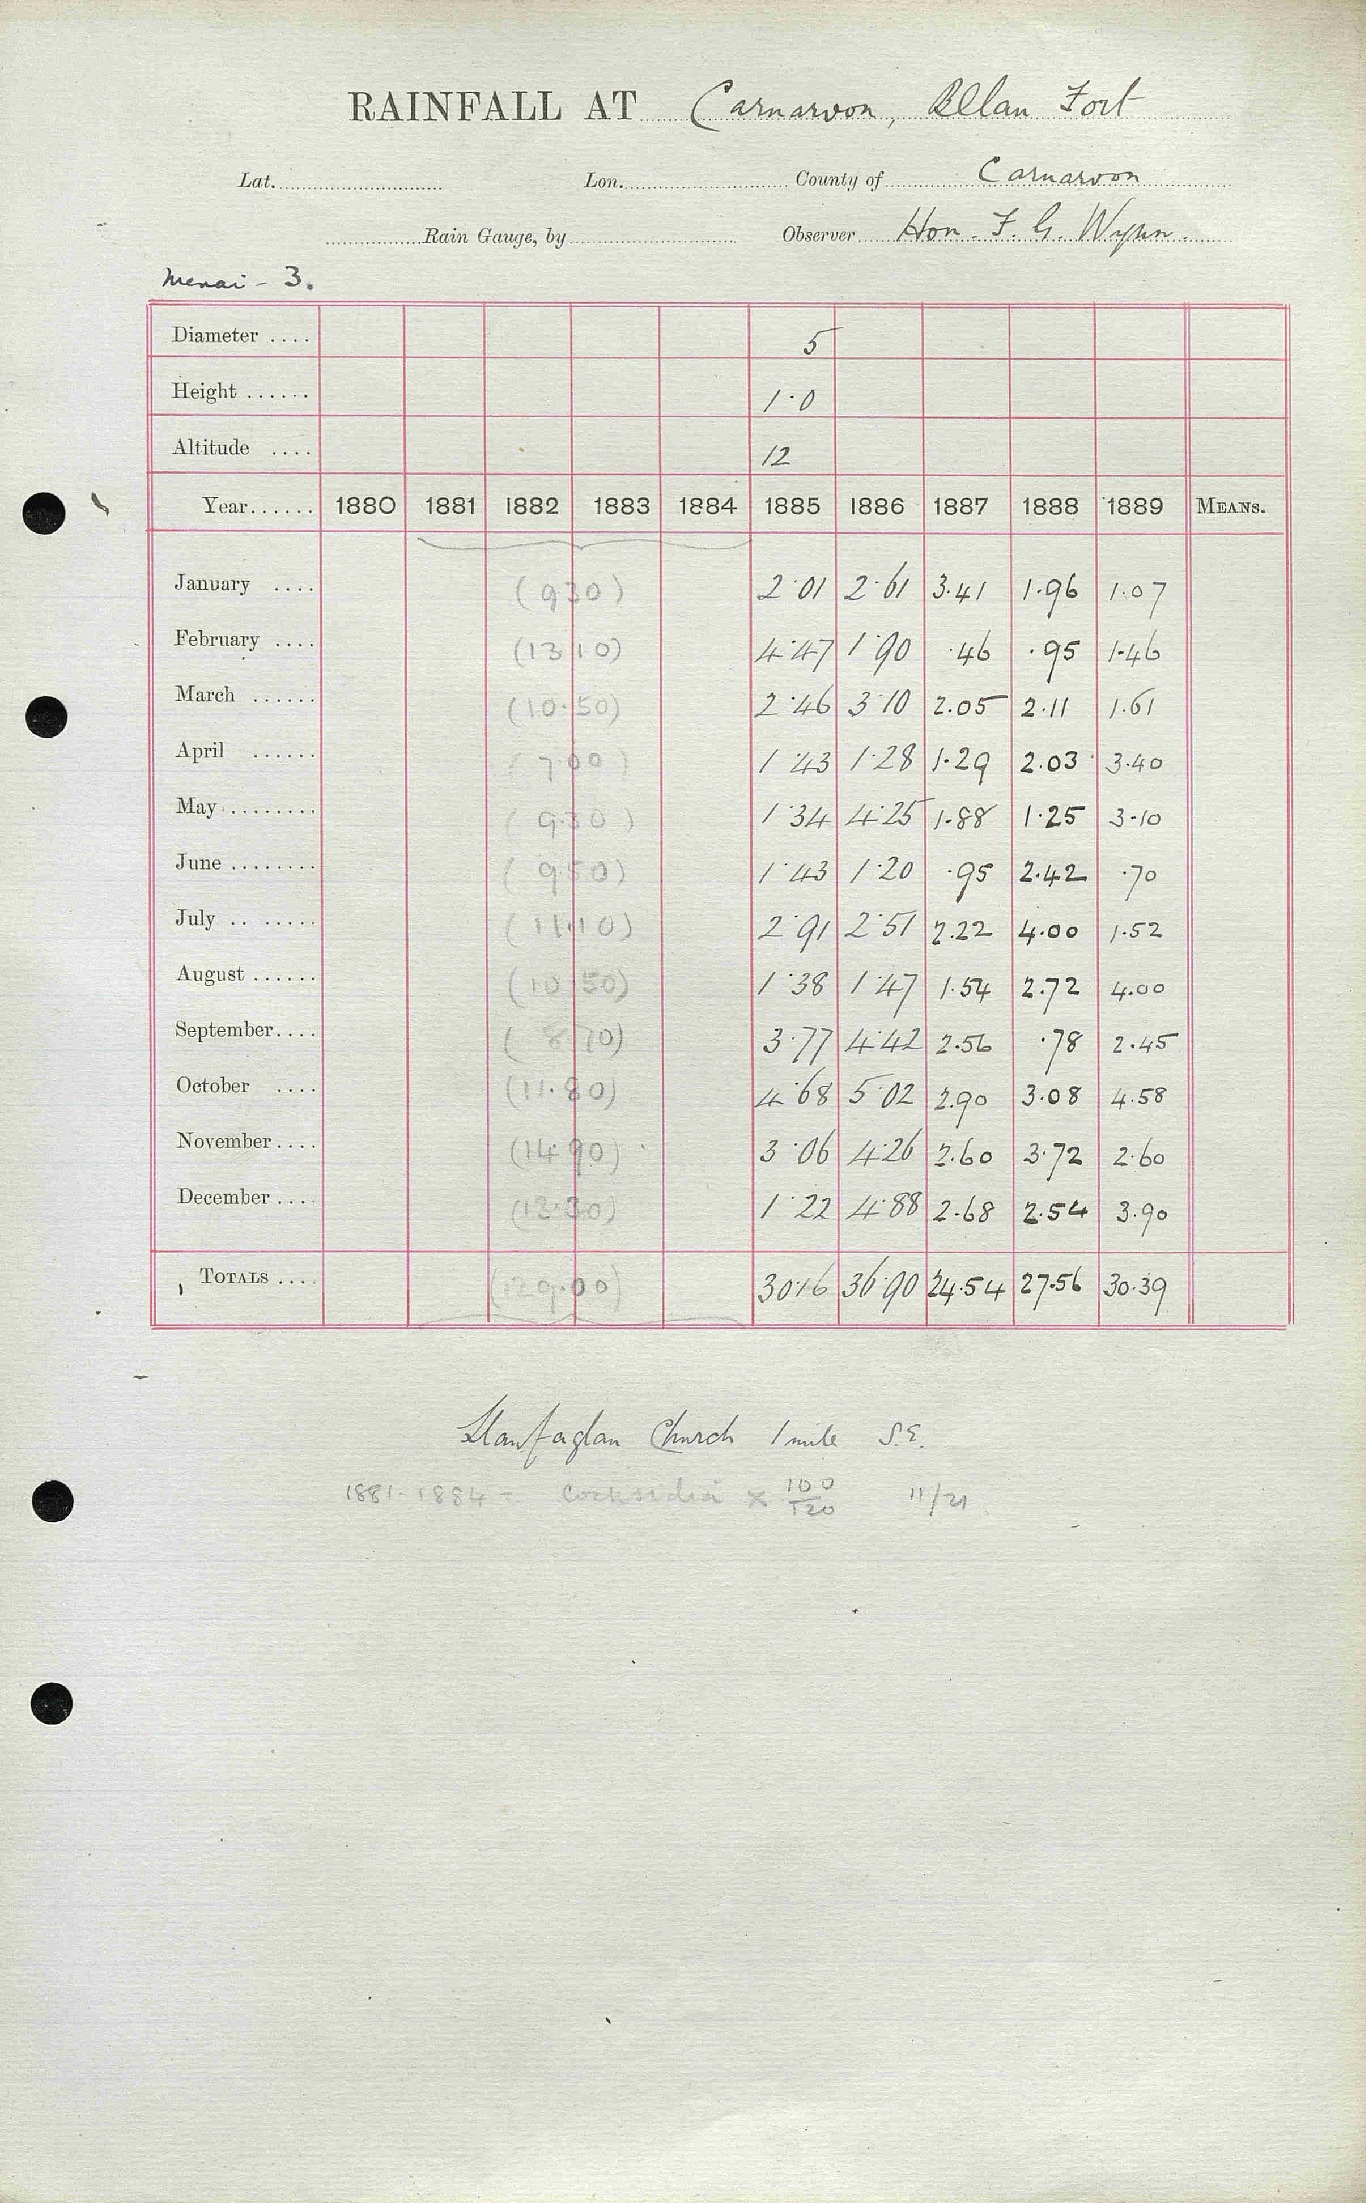 RAINFALL AT Carnarvon, Belan Fort
Lat. Lon. County of Carnarvon
Rain Gauge, by Observer Hon. F. G. Wynn.
Menai - 3.
Diameter .... 5
Height ...... 1.0
Altitude .... 12
Year...... 1880 1881 1882 1883 1884 1885 1886 1887 1888 1889 MEANS.
January .... (9 30) 2.01 2.61 3.41 1.96 1.07
February .... (13 10) 4.47 1.90 .46 .95 1.46
March ...... (10.50) 2.46 3.10 2.05 2.11 1.61
April ...... (7 00) 1.43 1.28 1.29 2.03 3.40
May ........ (9.30) 1.34 4.25 1.88 1.25 3.10
June ........ (9 50) 1.43 1.20 .95 2.42 .70
July .. ...... (11.10) 2.91 2.51 2.22 4.00 1.52
August ...... (10 50) 1.38 1.47 1.54 2.72 4.00
September.... (8 70) 3.77 4.42 2.56 .78 2.45
October .... (11.80) 4.68 5.02 2.90 3.08 4.58
November.... (14.90) 3.06 4.26 2.60 3.72 2.60
December .... 1.22 4.88 2.68 2.54 3.90
TOTALS .... (129.00) 30.16 36.90 24.54 27.56 30.39
Llanfaglan Church 1 mile S.E.
1881-1884 = Cocksidia × 100/120 11/21